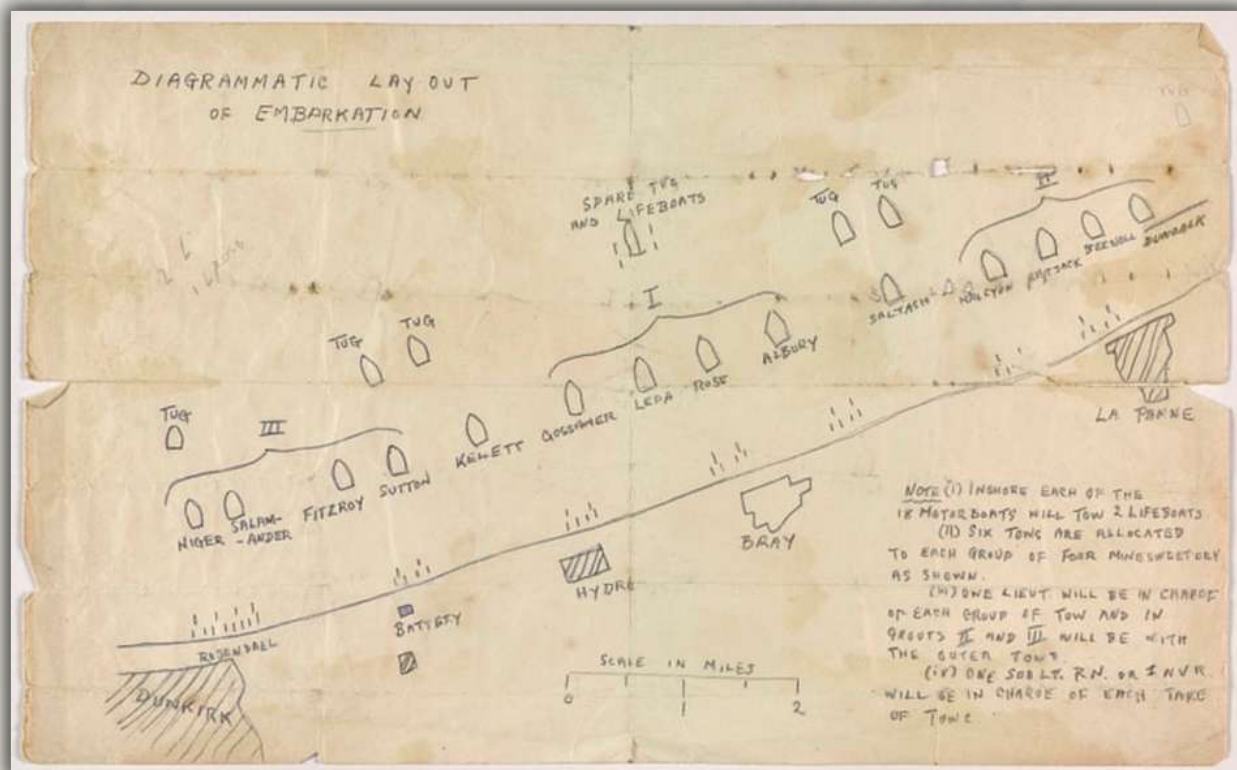 DIAGRAMMATIC LAY OUT
OF EMBARKATION
TUG
SPARE TUG
AND LIFEBOATS
TUG
TUG
II
DUNDALK
HALCYON
SALTASH
I
ALBURY
ROSS
LEDA
GOSSAMER
KELLETT
TUG
TUG
TUG
III
SUTTON
FITZROY
SALAM-
-ANDER
NIGER
LA PANNE
BRAY
HYDRE
BATTERY
ROSENDAEL
DUNKIRK
SCALE IN MILES
0 1 2
NOTE (I) INSHORE EACH OF THE
18 MOTORBOATS WILL TOW 2 LIFEBOATS.
(II) SIX TOWS ARE ALLOCATED
TO EACH GROUP OF FOUR MINESWEEPERS
AS SHOWN.
(III) ONE LIEUT. WILL BE IN CHARGE
OF EACH GROUP OF TOW AND IN
GROUPS II AND III WILL BE WITH
THE OUTER TOWS.
(IV) ONE SUB LT. R.N. OR R.N.V.R.
WILL BE IN CHARGE OF EACH
OF TOWS.